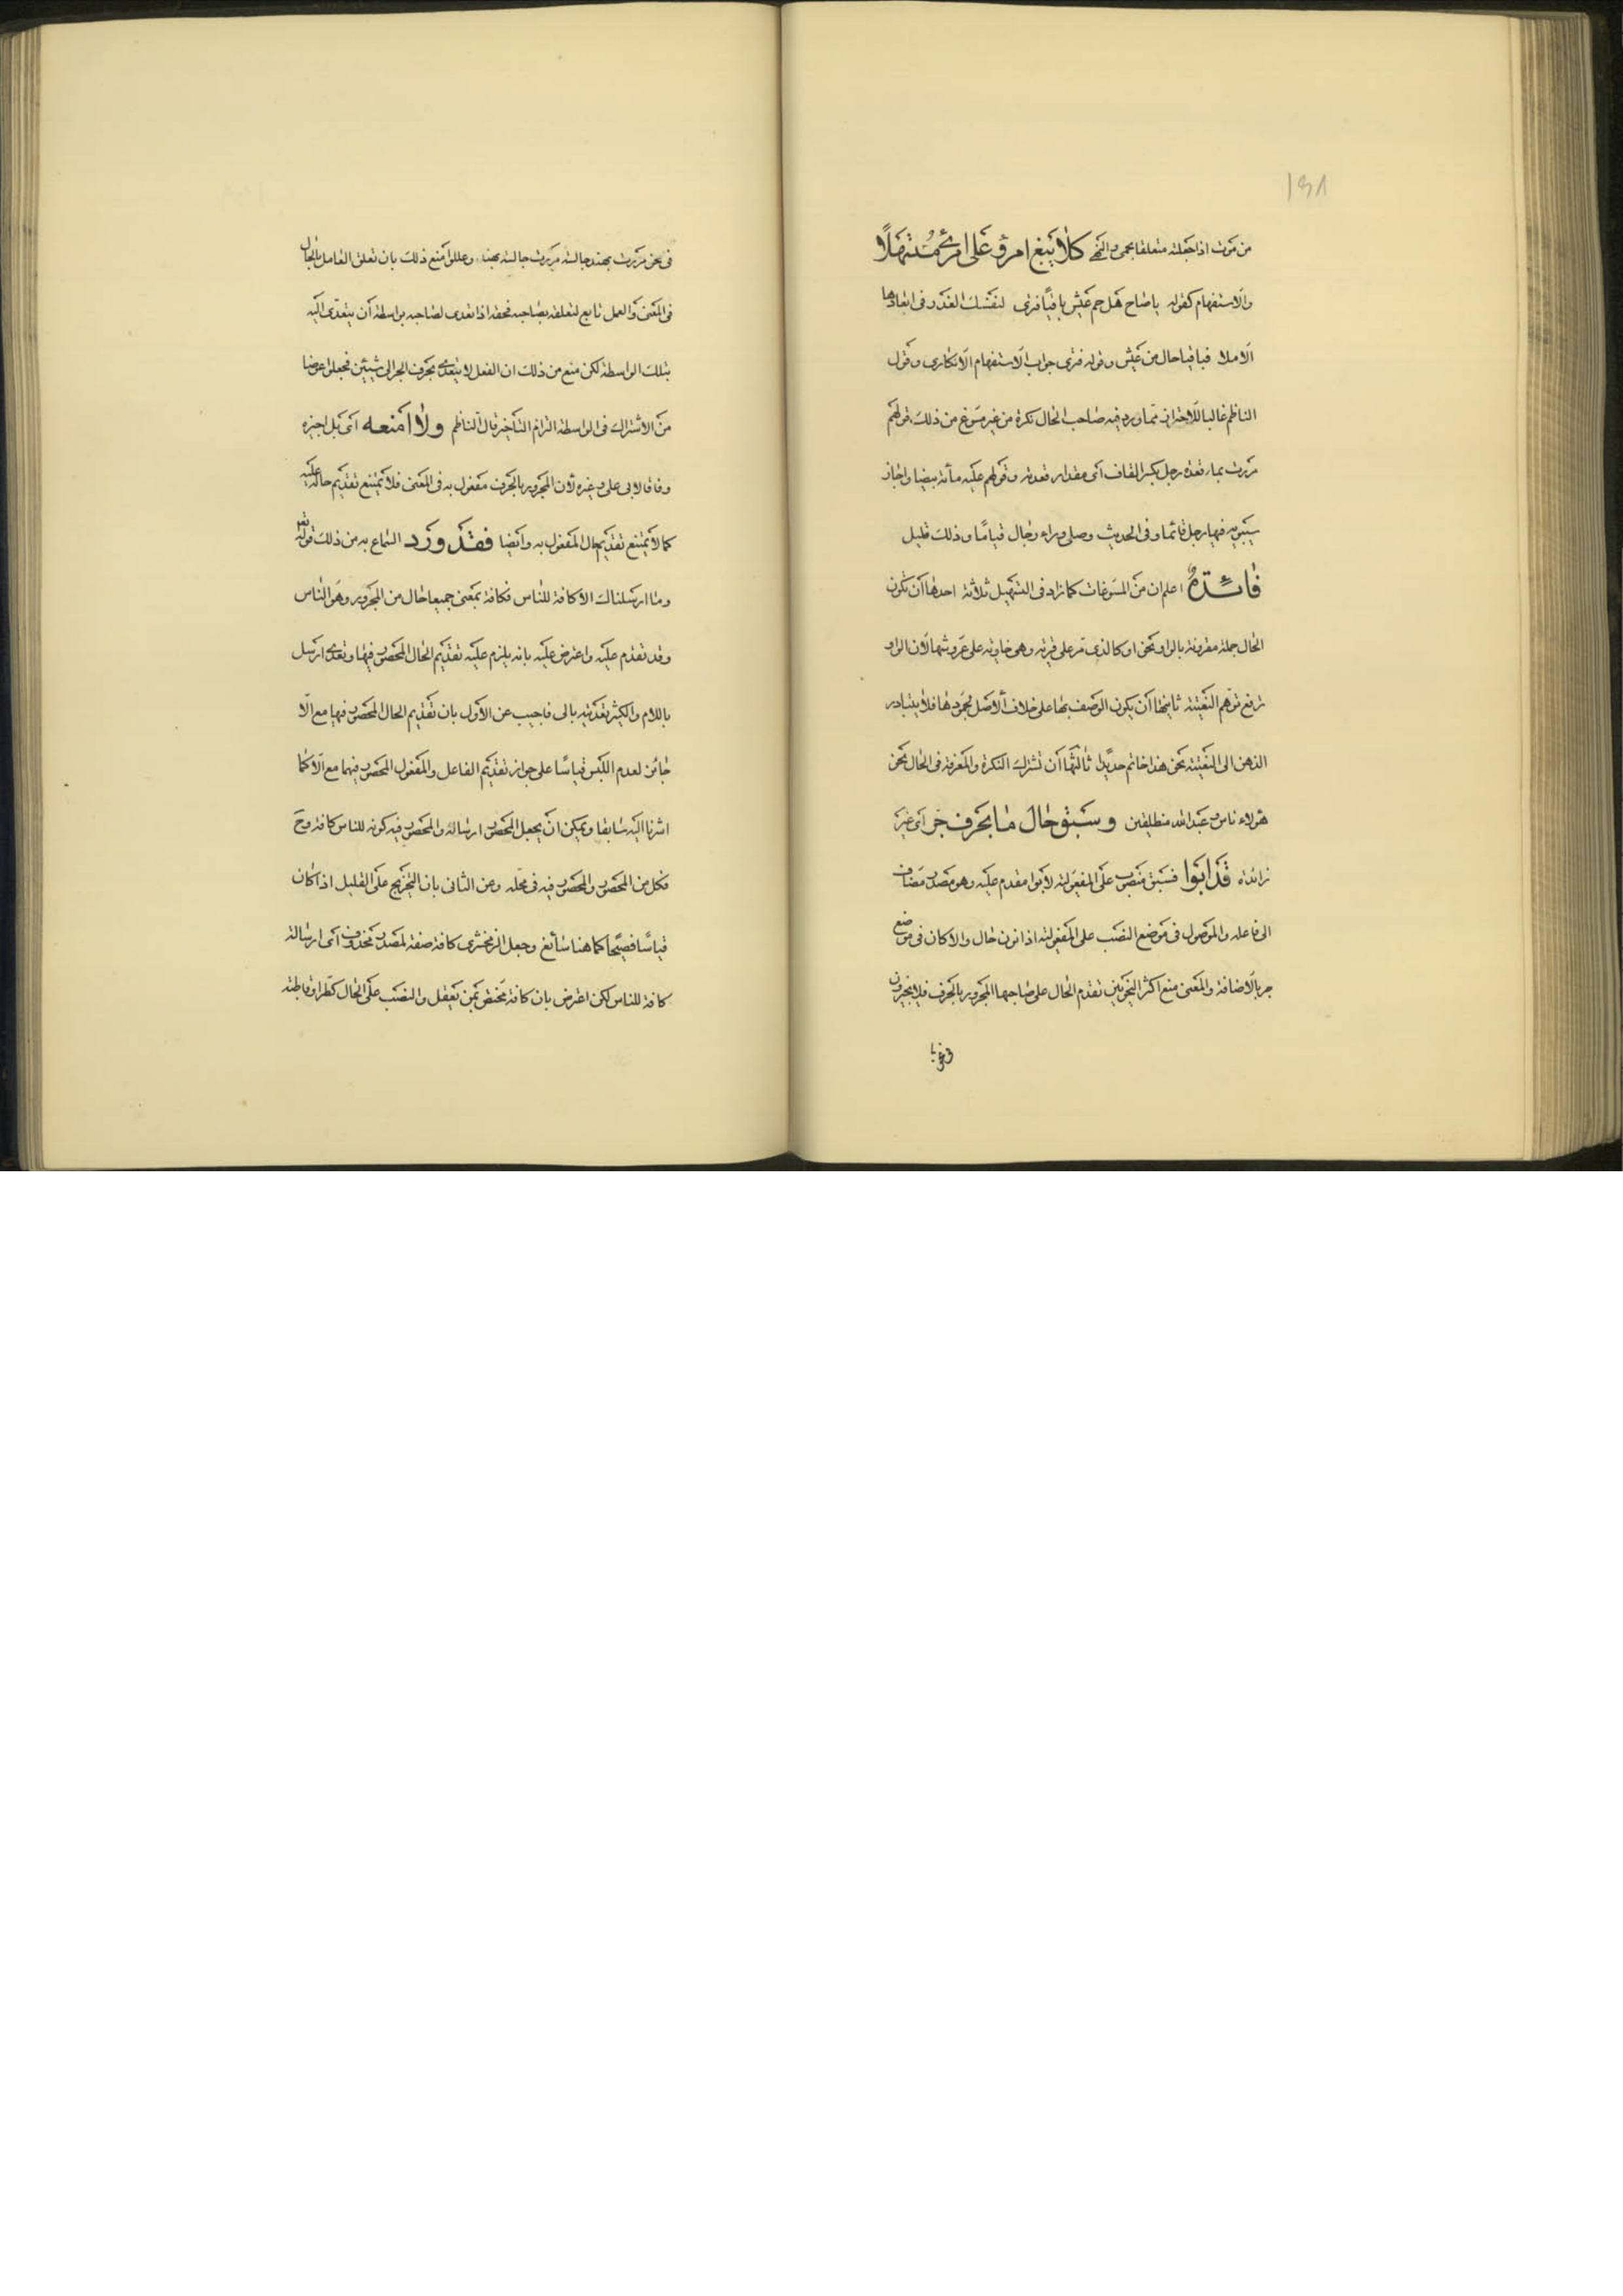 ١٩٨
من موت اذا جعلته متعلقا بحمى والنهى كلا يبغ امرؤ على امرئ مستسهلا
والاستفهام كقوله ياصاح هل حم عيش باقيا فترى لنفسك العذر فى ابعادها
الاملا فباقيا حال من عيش وقوله فترى جواب الاستفهام الانكارى وقول
الناظم غالبا للاحتراز مما ورد فيه صاحب الحال نكرة من غير مسوغ من ذلك قولهم
مررت بماء قعدة رجل بكسر القاف اى مقدار قعدته وقولهم عليه مائة بيضا واجاز
سيبويه فيها رجل قائما وفى الحديث وصلى وراءه رجال قياما وذلك قليل
فائدة اعلم ان من المسوغات كما زاد فى التسهيل ثلاثة احدها ان تكون
الحال جملة مقرونة بالواو نحو او كالذى مر على قرية وهى خاوية على عروشها لان الواو
ترفع توهم النعتية ثانيها ان يكون الوصف بها على خلاف الاصل لجمودها فلا يتبادر
الذهن الى النعتية نحو هذا خاتم حديدا ثالثها ان تشترك النكرة والمعرفة فى الحال نحو
هؤلاء ناس وعبد الله منطلقين وسبق حال ما بحرف جر اى غير
زائدة قد ابوا فسبق منصوب على المفعولية لابوا مقدم عليه وهو مصدر مضاف
الى فاعله والموصول فى موضع النصب على المفعولية اذا نون حال والا كان فى موضع
جر بالاضافة والمعنى منع اكثر النحويين تقدم الحال على صاحبها المجرور بالحرف فلا يجيزون
فى نحو مررت بهند جالسة مررت جالسة بهند وعللوا منع ذلك بان تعلق العامل بالحال
فى المعنى والعمل تابع لتعلقه بصاحبه فحقه اذا تعدى لصاحبه بواسطة ان يتعدى اليه
بتلك الواسطة لكن منع من ذلك ان الفعل لا يتعدى بحرف الجر الى شيئين فجعلوا عوضا
من الاشتراك فى الواسطة التزام التاخير قال الناظم ولا امنعه اى بل اجيزه
وفاقا لابى على وغيره لان المجرور بالحرف مفعول به فى المعنى فلا يمتنع تقديم حاله عليه
كما لا يمتنع تقديم حال المفعول به وايضا فقد ورد السماع به من ذلك قوله تعالى
وما ارسلناك الا كافة للناس فكافة بمعنى جميعا حال من المجرور وهو الناس
وقد تقدم عليه واعترض عليه بانه يلزم عليه تقديم الحال المحصور فيها وتعدى ارسل
باللام والكثير تعديته بالى فاجيب عن الاول بان تقديم الحال المحصور فيها مع الا
جائز لعدم اللبس قياسا على جواز تقديم الفاعل والمفعول المحصور فيهما مع الا كما
اشرنا اليه سابقا ويمكن ان يجعل المحصور ارساله والمحصور فيه كونه للناس كافة وح
فكل من المحصور والمحصور فيه فى محله وعن الثانى بان التخريج على القليل اذا كان
قياسا فصيحا كما هنا سائغ وجعل الزمخشرى كافة صفة لمصدر محذوف اى ارسالة
كافة للناس لكن اعترض بان كافة مختص بمن يعقل والنصب على الحال كطرا وقاطبة